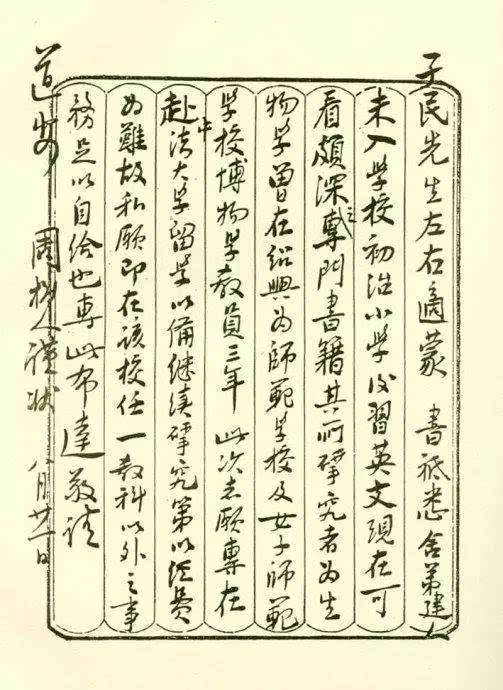 孑民先生左右適蒙 書祗悉舍弟建人
未入學校初治小學後習英文現在可
看頗深之專門書籍其所研究者為生
物學曾在紹興為師範學校及女子師範
學校博物學教員三年此次志願專在
赴中法大學留學以備繼續研究第以經費
為難故私願即在該校任一教科以外之事
務足以自給也專此布達敬請
道安 周樹人謹狀 八月廿一日